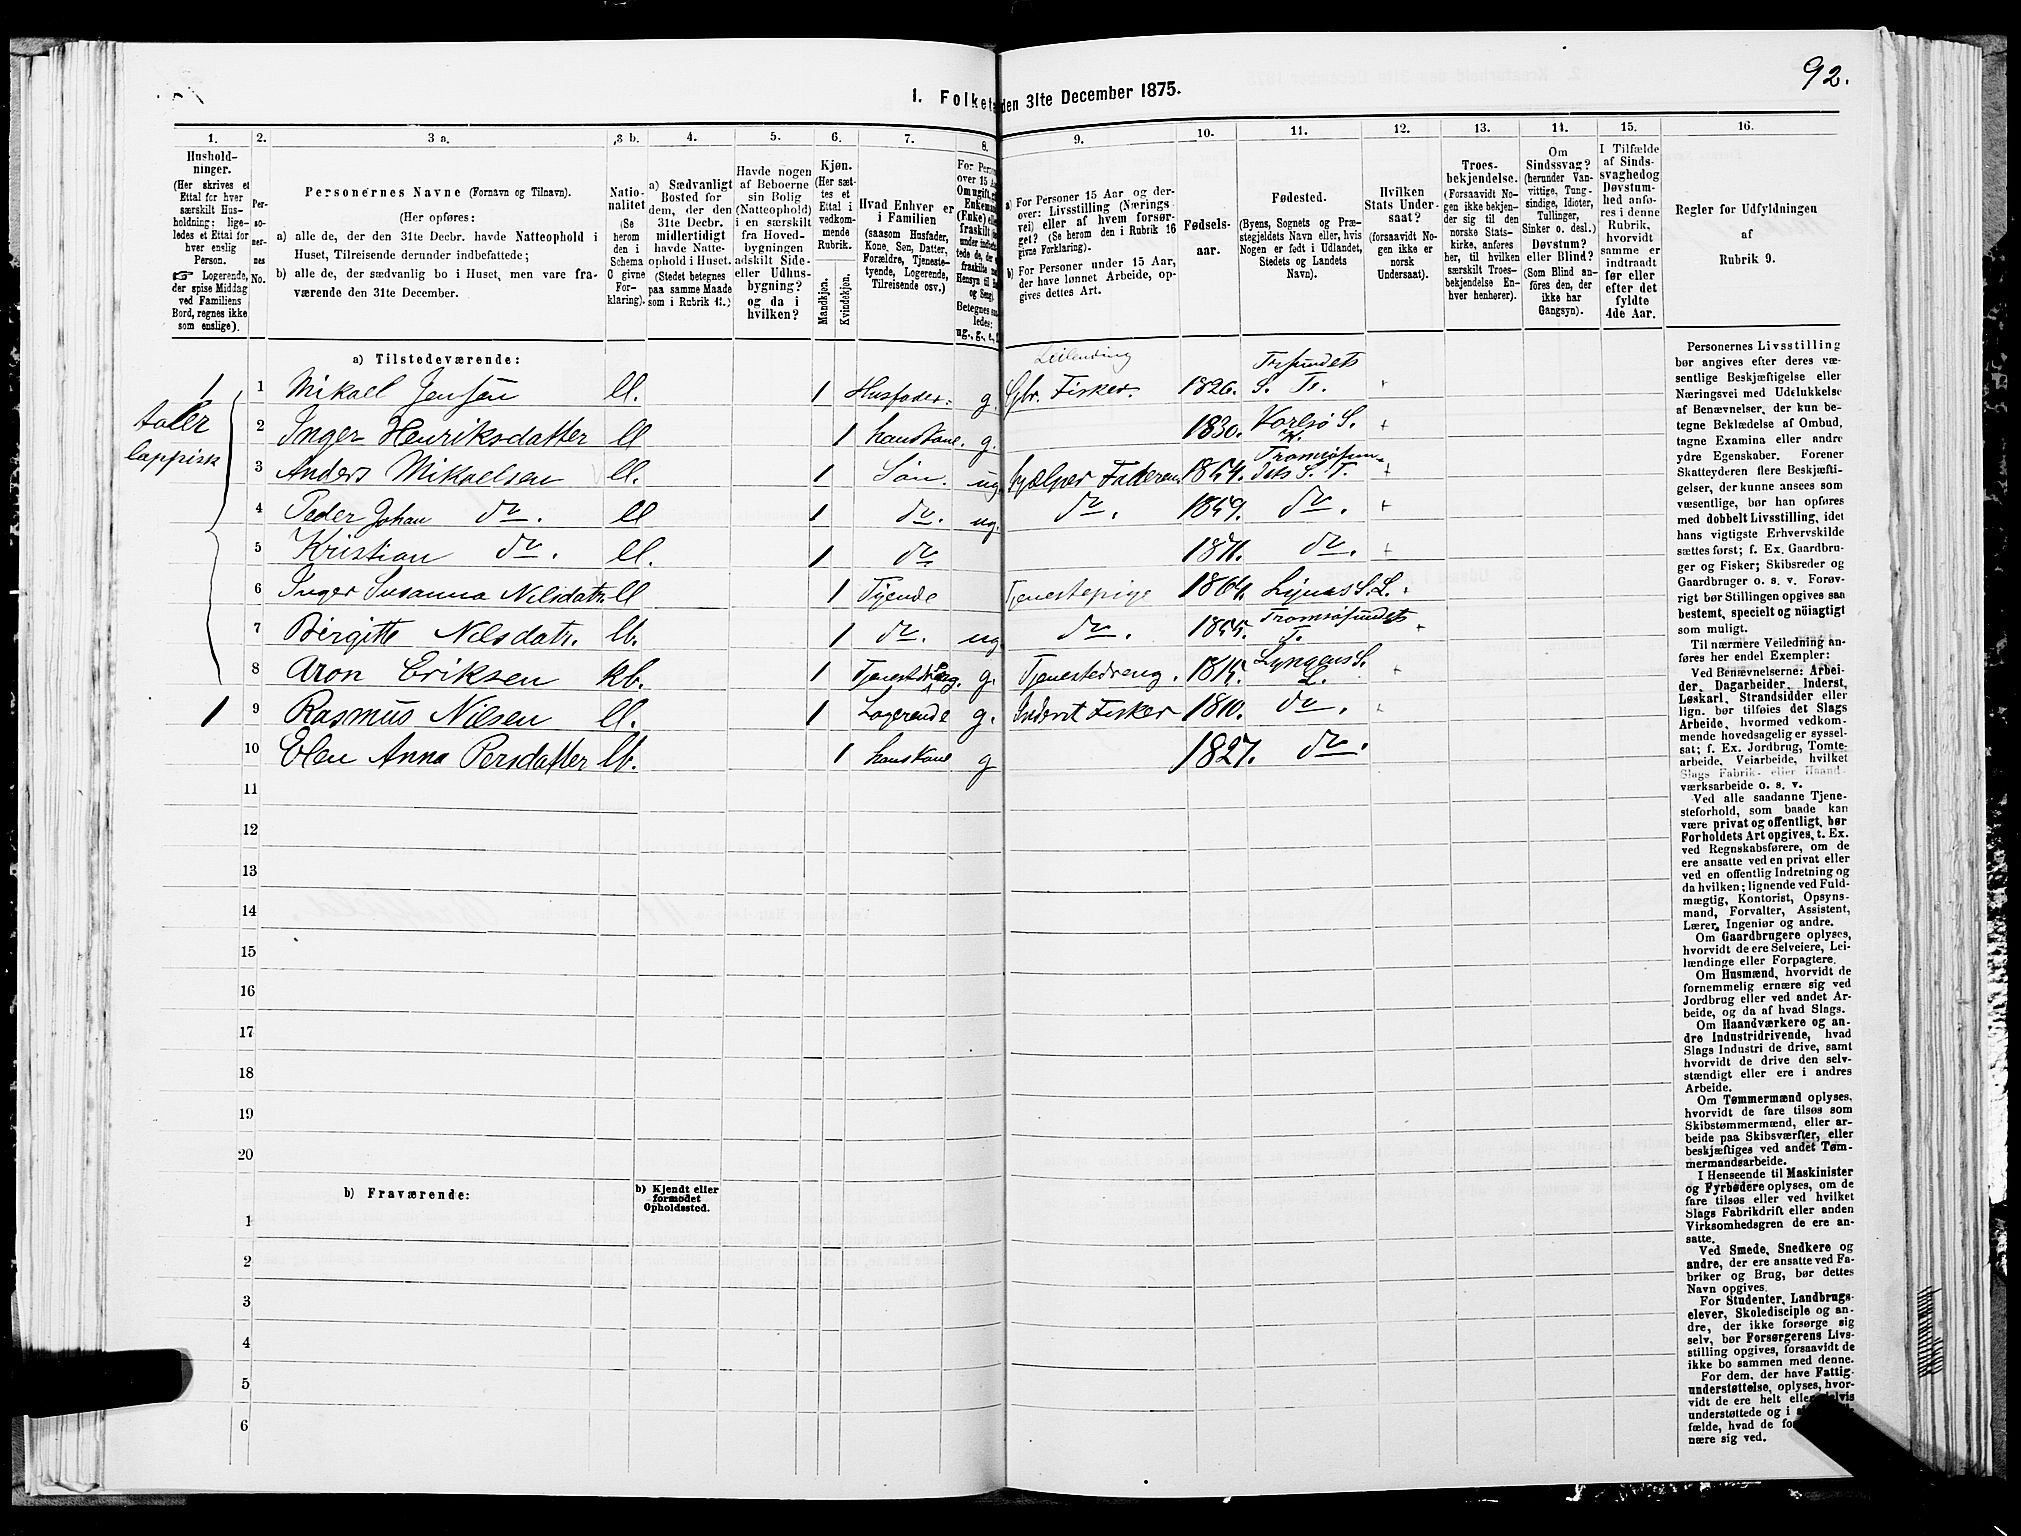 92.
1. Folket den 31te December 1875.
1. 2. 3 a. 3 b. 4. 5. 6. 7. 8. 9. 10. 11. 12. 13. 14. 15. 16.
Husholdninger.
(Her skrives et
Ettal for hver
særskilt Husholdning;
ligeledes et Ettal for
hver enslig
Person.
☞ Logerende,
der spise Middag
ved Familiens
Bord, regnes ikke
som enslige).
Personernes No.
Personernes Navne (Fornavn og Tilnavn).
(Her opføres:
a) alle de, der den 31te Decbr. havde Natteophold i
Huset, Tilreisende derunder indbefattede;
b) alle de, der sædvanlig bo i Huset, men vare fraværende
den 31te December.
Nationalitet
(Se
herom
den i
Schema
O givne
Forklaring).
a) Sædvanligt
Bosted for
dem, der den
31te Decbr.
midlertidigt
havde Natteophold
i Huset.
(Stedet betegnes
paa samme Maade
som i Rubrik 11.)
Havde nogen
af Beboerne
sin Bolig
(Natteophold)
i en særskilt
fra Hovedbygningen
adskilt Side-
eller Udhusbygning?
og da i
hvilken?
Kjøn.
(Her sættes
et
Ettal i
vedkommende
Rubrik.
Mandkjøn.
Kvindekjøn.
Hvad Enhver er
i Familien
(saasom Husfader,
Kone, Søn, Datter,
Forældre, Tjenestetyende,
Logerende,
Tilreisende osv.)
a) For Personer 15 Aar og derover:
Livsstilling (Næringsvei)
eller af hvem forsørget?
(Se herom de i Rubrik 16
givne Forklaring).
b) For Personer under 15 Aar,
der have lønnet Arbeide, opgives
dettes Art.
Fødselsaar.
Fødested.
(Byens, Sognets og Præstegjeldets
Navn eller, hvis
Nogen er født i Udlandet,
Stedets og Landets
Navn).
Hvilken
Stats Undersaat?
(forsaavidt Nogen
ikke er
norsk
Undersaat).
Troesbekjendelse.
(Forsaavidt Nogen
ikke bekjender
sig til den
norske Statskirke,
anføres
her, til hvilken
særskilt Troesbekjendelse
Enhver
henhører).
Om
Sindssvag?
(herunder Vanvittige,
Tungsindige,
Idioter,
Tullinger,
Sinker o. desl.)
Døvstum?
eller Blind?
(Som Blind anføres
den, der
ikke har
Gangsyn).
I Tilfælde
af Sindssvaghed
og
Døvstumhed
anføres
i denne
Rubrik,
hvorvidt
samme er
indtraadt
før eller
efter det
fyldte
4de Aar.
Regler for Udfyldningen
af
Rubrik 9.
a) Tilstedeværende:
1 1 Mikael Jensen ll. 1 Husfader. g. Leilending Gbr. Fisker. 1826. Trsundets S. Tr.
taler lappisk
2 Inger Henriksdatter ll 1 hans kone. g. 1830. Karlsø S. K.
3 Anders Mikaelsen ll. 1 Søn. ug. hjælper Faderen 1854. Tromsøsundets S. T.
4 Peder Johan do. ll 1 do. ug. do. 1859. do.
5 Kristian do. ll. 1 do 1871. do.
6 Inger Susanna Nilsdatr. ll 1 Tyende Tjenestepige 1864. Lyngs S. L.
7 Birgitte Nilsdatr. lb. 1 do. ug. do. 1855. Tromsøsundets T.
8 Aron Eriksen kb. 1 Tjenestedreng. g. Tjenestedreng. 1815. Lyngens S. L.
1 9 Rasmus Nilsen ll. 1 Logerende g. Inderst Fisker 1810. do.
10 Elen Anna Persdatter lb. 1 hans kone g 1827. do.
11
12
13
14
15
16
17
18
19
20
b) Fraværende:
b) Kjendt eller
formodet
Opholdssted.
1
2
3
4
5
6
Personernes Livsstilling
bør angives efter deres væsentlige
Beskjæftigelse eller
Næringsvei med Udelukkelse
af Benævnelser, der kun betegne
Beklædelse af Ombud,
tagne Examina eller andre
ydre Egenskaber. Forener
Skatteyderen flere Beskjæftigelser,
der kunne ansees som
væsentlige, bør han opføres
med dobbelt Livsstilling, idet
hans vigtigste Erhvervskilde
sættes først; f. Ex. Gaardbruger
og Fisker; Skibsreder og
Gaardbruger o. s. v. Forøvrigt
bør Stillingen opgives saa
bestemt, specielt og nöiagtigt
som muligt.
Til nærmere Veiledning anføres
her endel Exempler:
Ved Benævnelserne: Arbeider,
Dagarbeider, Inderst,
Løskarl, Strandsidder eller
lign. bør tilføies det Slags
Arbeide, hvormed vedkommende
hovedsagelig er sysselsat;
f. Ex. Jordbrug, Tomtearbeide,
Veiarbeide, hvilket
Slags Fabrik- eller Haandværksarbeide
o. s. v.
Ved alle saadanne Tjenesteforhold,
som baade kan
være privat og offentligt, bør
Forholdets Art opgives, t. Ex.
ved Regnskabsførere, om de
ere ansatte ved en privat eller
ved en offentlig Indretning og
da hvilken; lignende ved Fuldmægtig,
Kontorist, Opsynsmand,
Forvalter, Assistent,
Lærer, Ingeniør og andre.
Om Gaardbrugere oplyses,
hvorvidt de ere Selveiere, Leilændinge
eller Forpagtere.
Om Husmænd, hvorvidt de
fornemmelig ernære sig ved
Jordbrug eller ved andet Arbeide,
og da af hvad Slags.
Om Haandværkere og andre
Industridrivende, hvad
Slags Industri de drive, samt
hvorvidt de drive den selvstændigt
eller ere i andres
Arbeide.
Om Tømmermænd oplyses,
hvorvidt de fare tilsøs som
Skibstømmermænd, eller arbeide
paa Skibsværfter, eller
beskjæftiges ved andet Tømmermandsarbeide.
I Henseende til Maskinister
og Fyrbødere oplyses, om de
fare tilsøs eller ved hvilket
Slags Fabrikdrift eller anden
Virksomhedsgren de ere ansatte.
Ved Smede, Snedkere og
andre, der ere ansatte ved Fabriker
og Brug, bør dettes
Navn opgives.
For Studenter, Landbrugselever,
Skoledisciple og andre,
der ikke forsørge sig
selv, bør Forsørgerens Livsstilling
opgives, forsaavidt de
ikke bo sammen med denne.
For dem, der have Fattigunderstøttelse,
oplyses, hvorvidt
de ere helt eller delvis
understøttede og i
fælde, hvad de
nære sig ved.